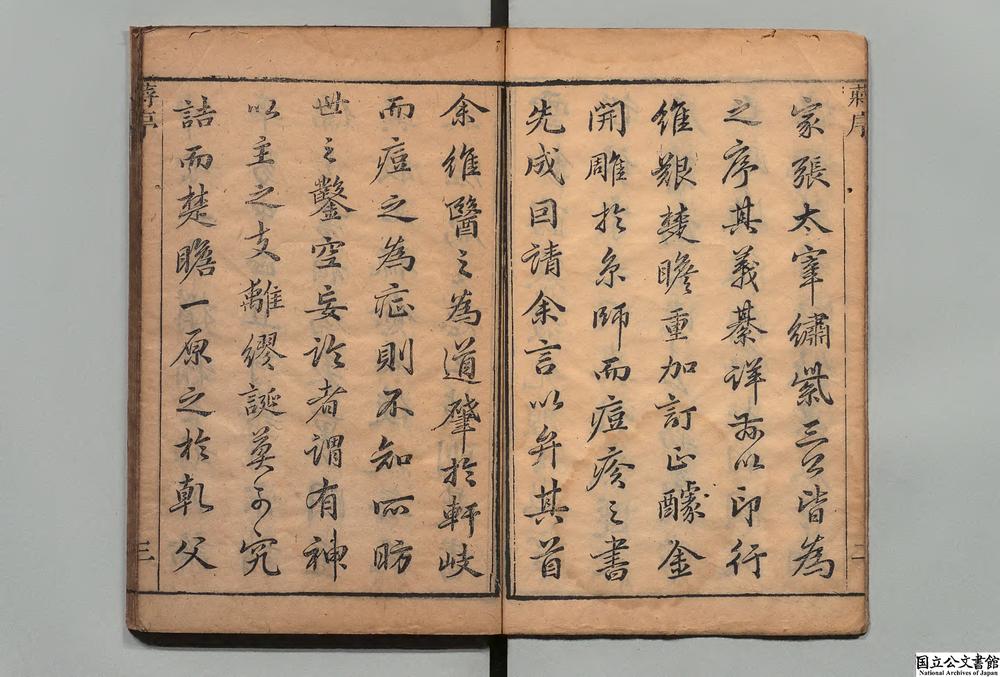 蔣序
二
家張太宰繡紫三公皆為
之序其義綦詳以印行
維艱楚瞻重加訂正醵金
開雕於京師而痘疹之書
先成囙請余言以弁其首
余維醫之為道肇於軒岐
而痘之為症則不知所昉
世之鑿空妄論者謂有神
以主之支離繆誕莫可究
詰而楚瞻一原之於乾父
蔣序
三
国立公文書館
National Archives of Japan